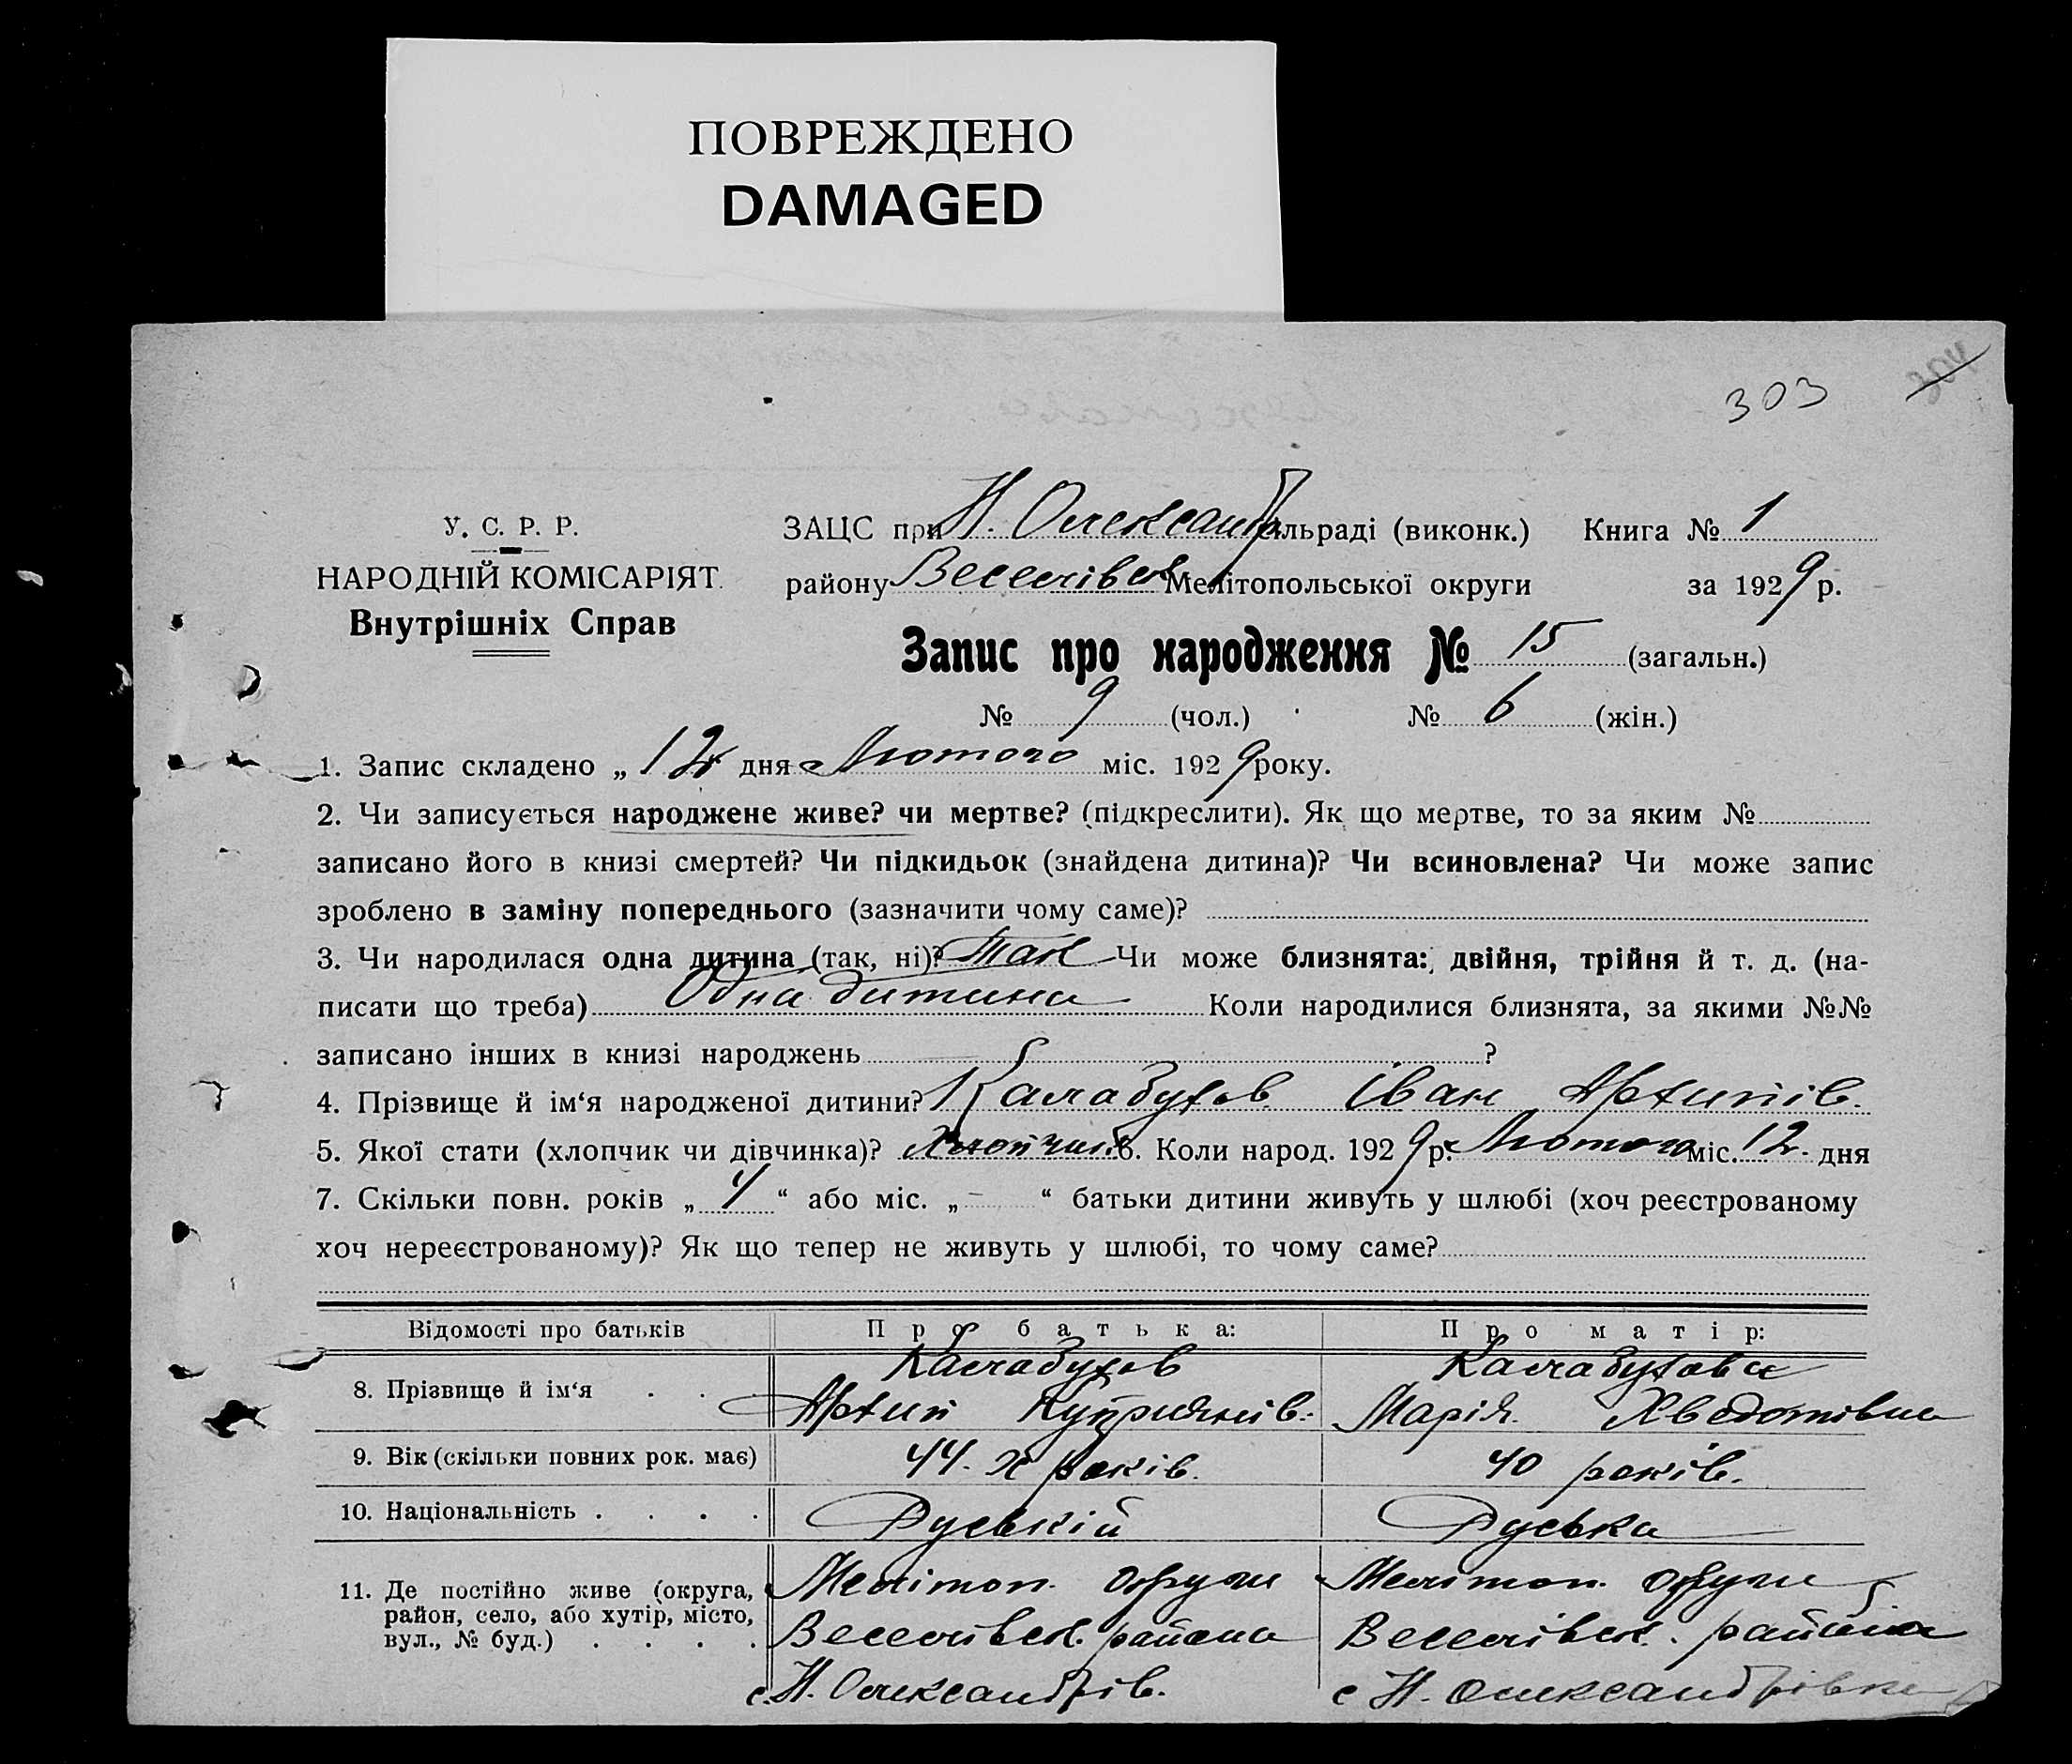 ПОВРЕЖДЕНО
DAMAGED
303
У. С. Р. Р.
НАРОДНІЙ КОМІСАРІЯТ
Внутрішніх Справ
ЗАЦС при Н. Олександр сільраді (виконк.) Книга № 1
району Веселівськ Мелітопольської округи за 1929 р.
Запис про народження № 15 (загальн.)
№ 9 (чол.) № 6 (жін.)
1. Запис складено „ 12 дня Лютого міс. 1929 року.
2. Чи записується народжене живе? чи мертве? (підкреслити). Як що мертве, то за яким №
записано його в книзі смертей? Чи підкидьок (знайдена дитина)? Чи всиновлена? Чи може запис
зроблено в заміну попереднього (зазначити чому саме)?
3. Чи народилася одна дитина (так, ні)? Так Чи може близнята: двійня, трійня й т. д. (на-
писати що треба) Одна дитина Коли народилися близнята, за якими №№
записано інших в книзі народжень ?
4. Прізвище й ім‘я народженої дитини? Калабухов Іван Архипів.
5. Якої стати (хлопчик чи дівчинка)? Хлопчик 6. Коли народ. 1929 р. Лютого міс. 12 дня
7. Скільки повн. років „ 4 “ або міс. „ - “ батьки дитини живуть у шлюбі (хоч реєстрованому
хоч нереєстрованому)? Як що тепер не живуть у шлюбі, то чому саме?
Відомості про батьків Про батька: Про матір:
8. Прізвище й ім‘я . . . Калабухов Архип Куприянів. Калабухова Марія Хведотівна
9. Вік (скільки повних рок. має) 44-х років. 40 років.
10. Національність . . . . Руській Руська
11. Де постійно живе (округа, Мелітоп. округи Мелітоп. округи
район, село, або хутір, місто, Веселівськ. района Веселівськ. района
вул., № буд.) . . . . с. Н. Олександрів. с Н. Олександрівка